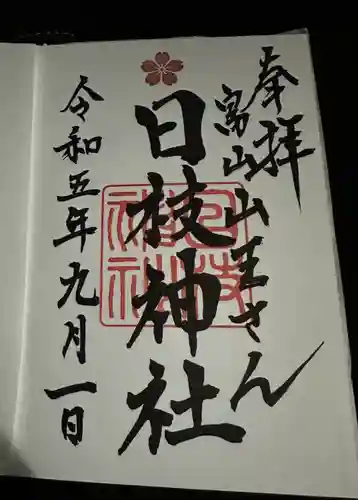 奉拝
富山山王さん
日枝神社
日枝神社
令和五年九月一日